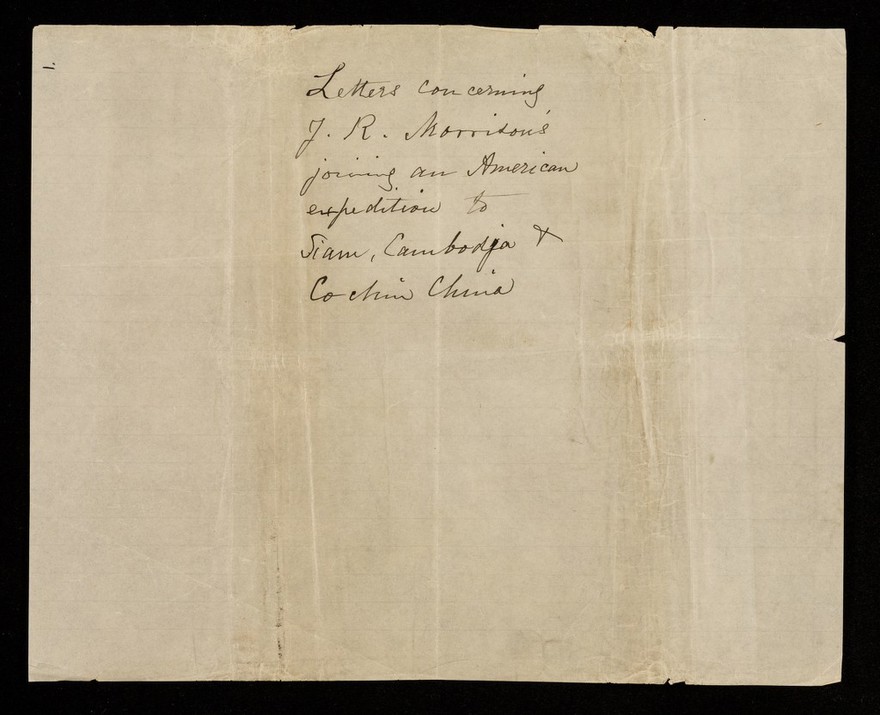 Letters concerning
J. R. Morrison's
joining an American
expedition to
Siam, Cambodja &
Cochin China